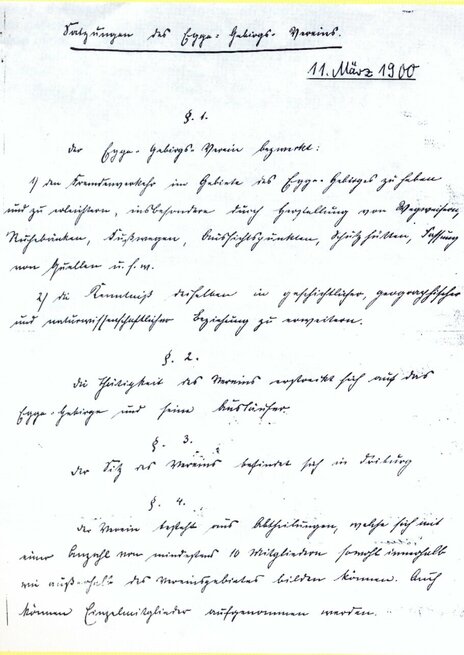 Satzungen des Egge-Gebirgs-Vereins.
11. März 1900
§. 1.
der Egge-Gebirgs-Verein bezweckt:
1) den Fremdenverkehr im Gebiete des Egge-Gebirges zu heben
und zu erleichtern, insbesondere durch Herstellung von Wegweisern,
Ruhebänken, Fußwegen, Aussichtspunkten, Schutzhütten, Fassung
von Quellen u.s.w.
2) die Kenntniß desselben in geschichtlicher, geographischer
und naturwissenschaftlicher Beziehung zu erweitern.
§. 2.
die Thätigkeit des Vereins erstreckt sich auf das
Egge-Gebirge und seine Ausläufer.
§. 3.
der Sitz des Vereins befindet sich in Driburg
§. 4.
der Verein besteht aus Abtheilungen, welche sich mit
einer Anzahl von mindestens 10 Mitgliedern sowohl innerhalb
wie außerhalb des Vereinsgebietes bilden können. Auch
können Einzelmitglieder aufgenommen werden.